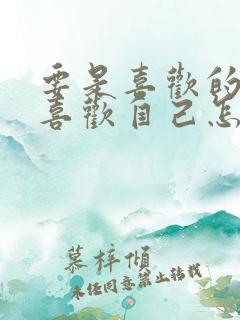 要是喜歡的
喜歡自己怎
慕梓傾
未任同意禁止转载